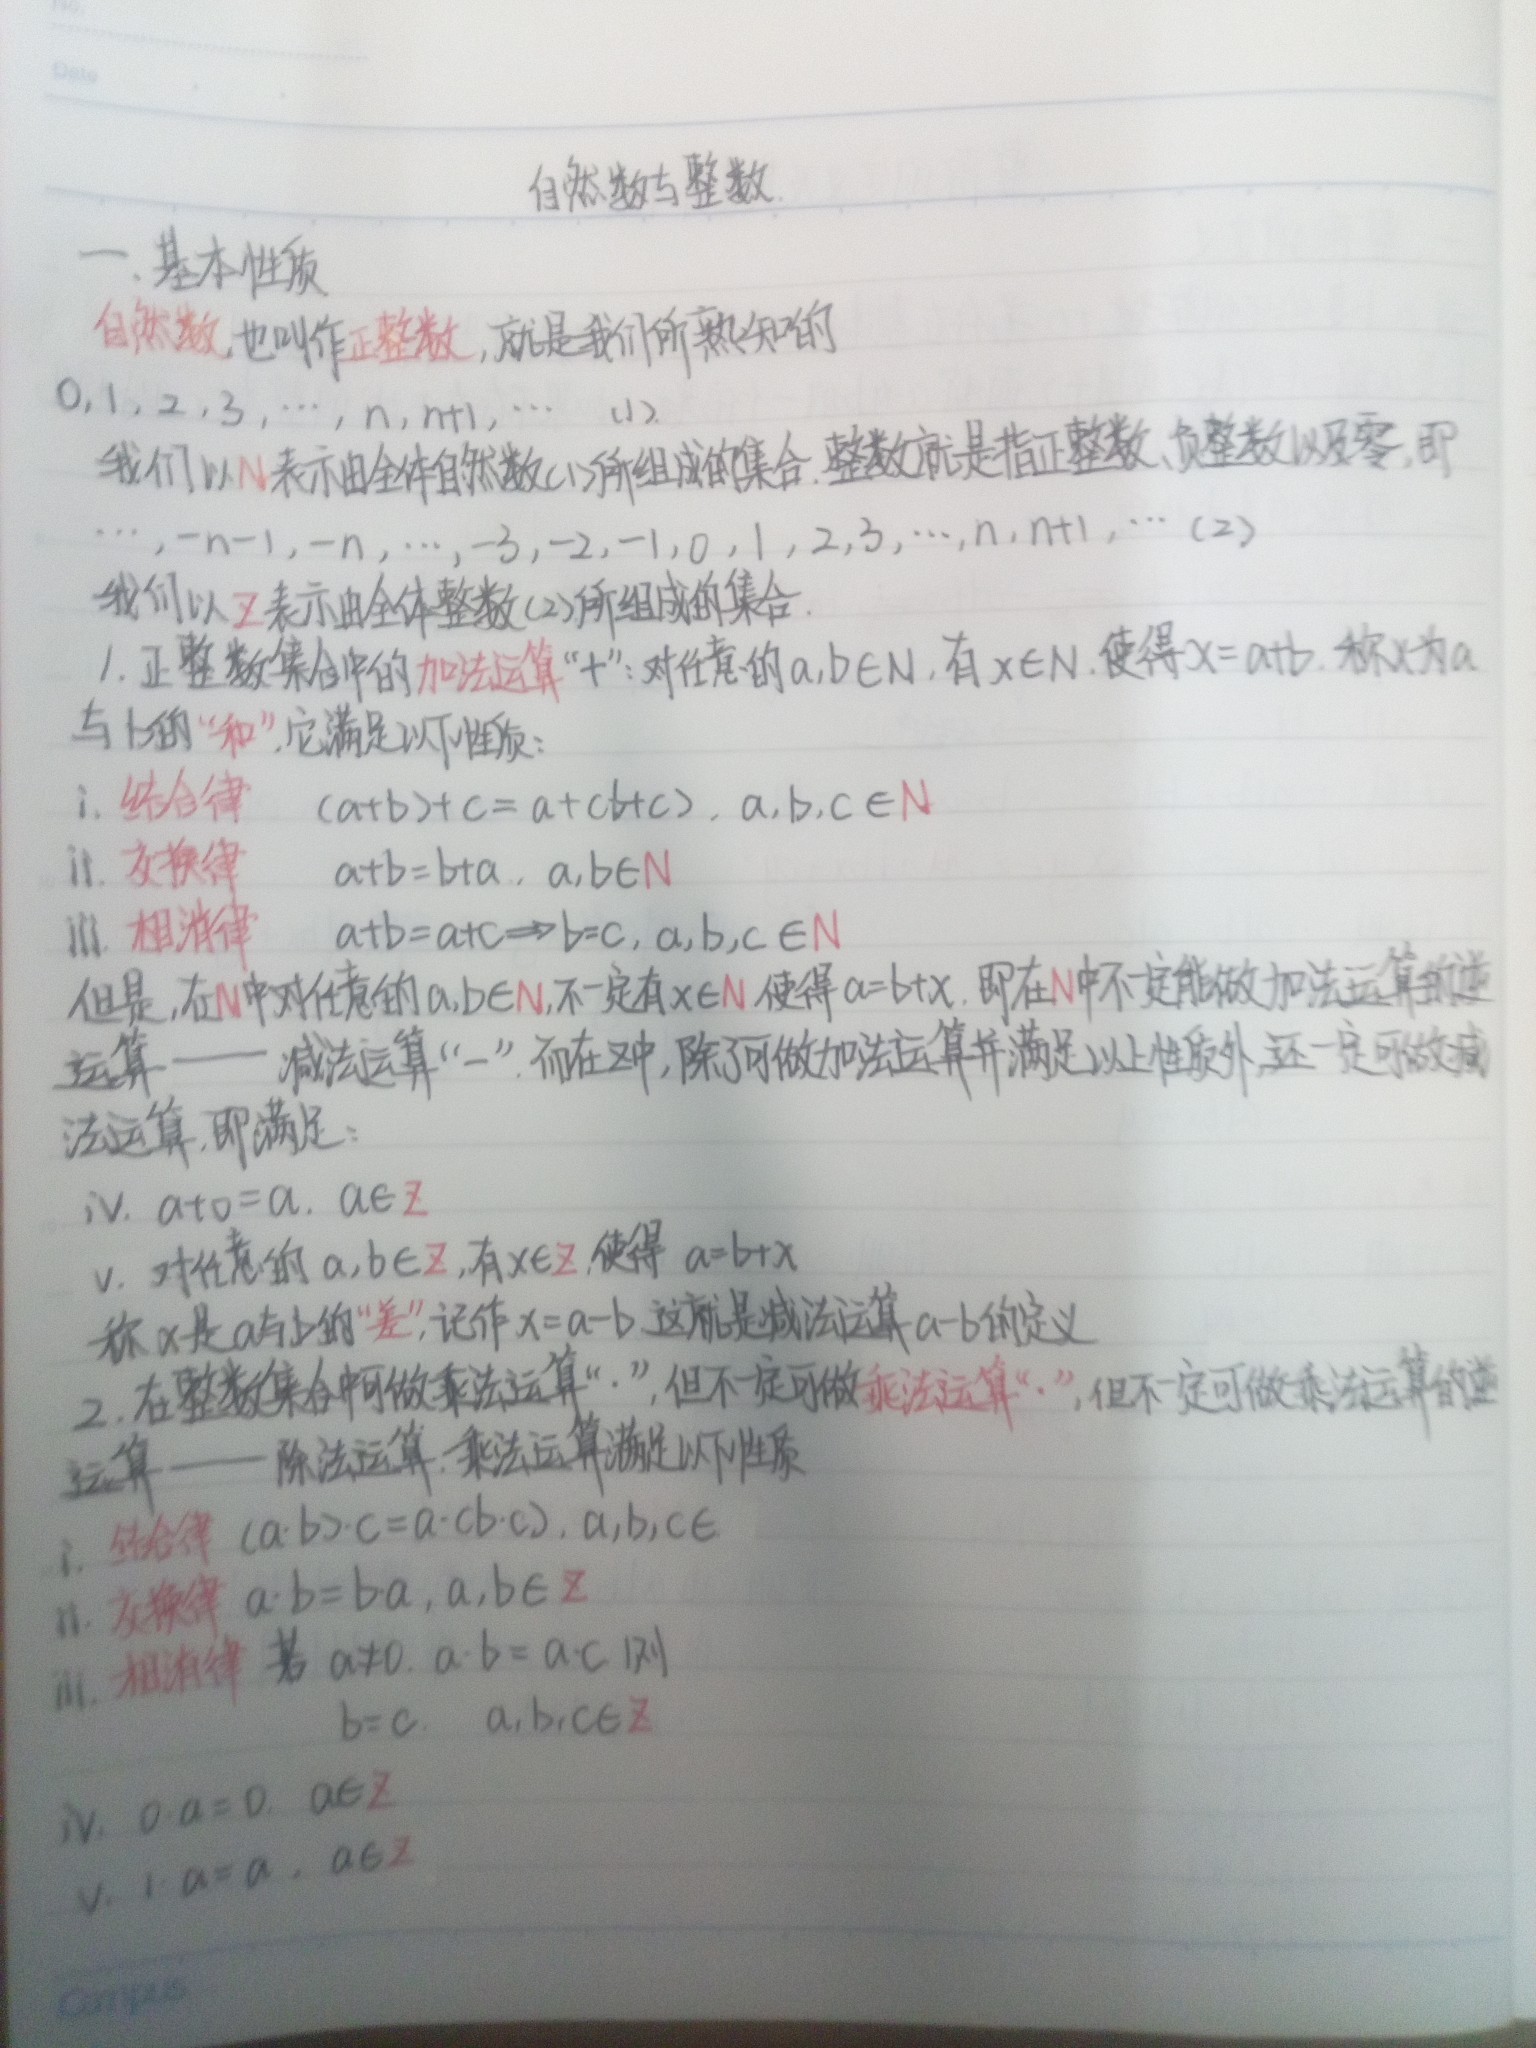 No.
Date
自然数与整数.
一、基本性质
自然数,也叫作正整数,就是我们所熟知的
0, 1, 2, 3, …, n, n+1, … (1).
我们以N表示由全体自然数(1)所组成的集合.整数就是指正整数、负整数以及零,即
…, -n-1, -n, …, -3, -2, -1, 0, 1, 2, 3, …, n, n+1, … (2)
我们以Z表示由全体整数(2)所组成的集合.
1. 正整数集合中的加法运算“+”:对任意的a,b∈N,有x∈N.使得x=a+b.称x为a
与b的“和”.它满足以下性质:
i. 结合律 (a+b)+c=a+(b+c), a,b,c∈N
ii. 交换律 a+b=b+a, a,b∈N
iii. 相消律 a+b=a+c⇒b=c, a,b,c∈N
但是,在N中对任意的a,b∈N,不一定有x∈N.使得a=b+x.即在N中不一定能做加法运算的逆
运算——减法运算“-”.而在Z中,除了可做加法运算并满足以上性质外,还一定可做减
法运算.即满足:
iv. a+0=a. a∈Z
v. 对任意的a,b∈Z,有x∈Z,使得 a=b+x
称x是a与b的“差”,记作x=a-b.这就是减法运算a-b的定义
2. 在整数集合中可做乘法运算“·”,但不一定可做乘法运算“·”,但不一定可做乘法运算的逆
运算——除法运算.乘法运算满足以下性质
i. 结合律 (a·b)·c=a·(b·c), a,b,c∈
ii. 交换律 a·b=b·a, a,b∈Z
iii. 相消律 若 a≠0. a·b=a·c 则
b=c. a,b,c∈Z
iv. 0·a=0. a∈Z
v. 1·a=a. a∈Z
Campus